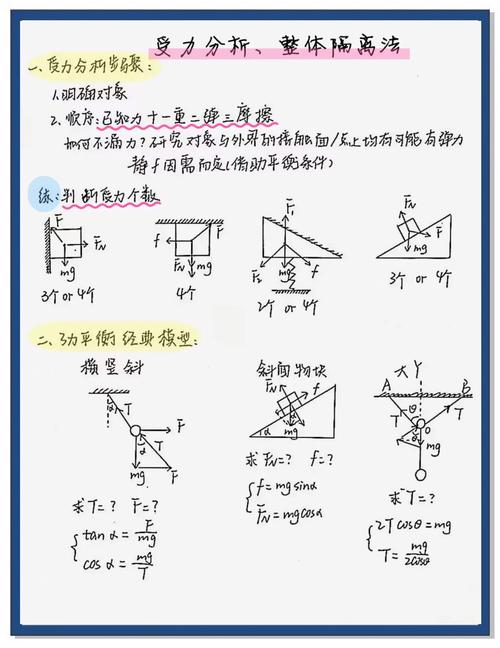 受力分析、整体隔离法
一、受力分析步骤:
1.明确对象
2.顺序:已知力十一重二弹三摩擦
如何不漏力?研究对象与外界的接触面/点上均有可能有弹力
静f因需而定(借助平衡条件)
练:判断受力个数
F F_N mg
3个 or 4个
f F_N mg
4个
F₁ F₂ mg f
2个 or 4个
F_N f mg
3个 or 4个
二、3力平衡经典模型:
横竖斜 斜面物块 大丫
α T F α mg F
求T=? F=?
tanα=F/mg
cosα=mg/T
F_N f α mg α
求F_N=? f=?
f=mgsinα
F_N=mgcosα
A B T θ T O mg
求T=?
2Tcosθ=mg
T=mg/2cosθ